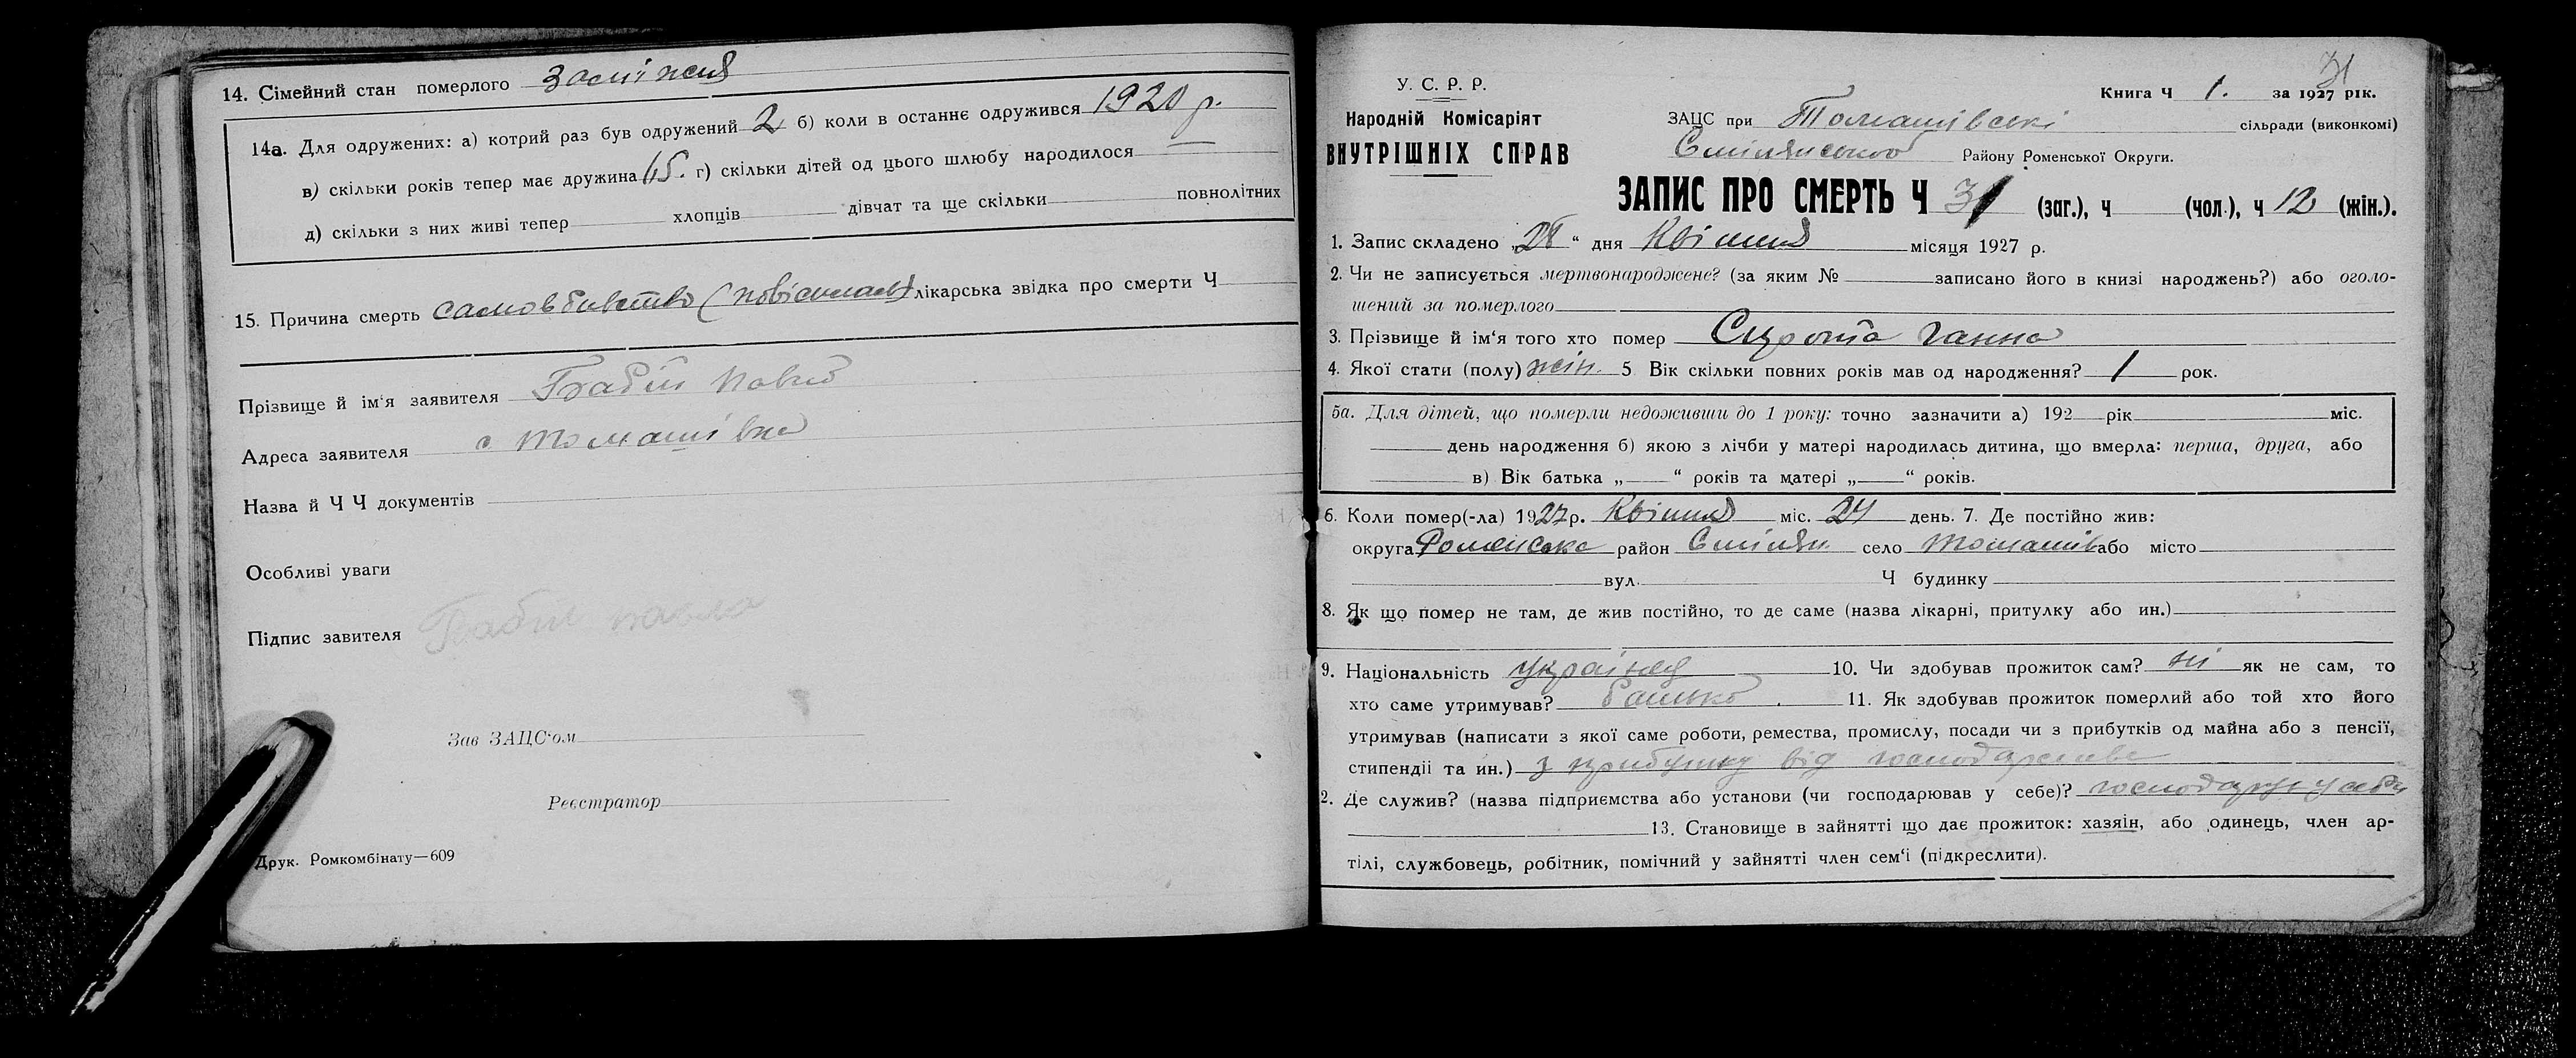 14. Сімейний стан померлого заміжня
14а. Для одружених: а) котрий раз був одружений 2 б) коли в останнє одружився 1920 р.
в) скільки років тепер має дружина 65. г) скільки дітей од цього шлюбу народилося —
д) скільки з них живі тепер хлопців дівчат та ще скільки повнолітних
15. Причина смерть самовбивство (повісилась) лікарська звідка про смерти Ч
Прізвище й ім'я заявителя Бабій Павло
Адреса заявителя с Томашівка
Назва й Ч Ч документів
Особливі уваги
Підпис завителя Бабій павло
Зав ЗАЦС'ом
Реєстратор
Друк. Ромкомбінату—609
31
У. С. Р. Р.
Народній Комісаріят
ВНУТРІШНІХ СПРАВ
Книга Ч 1. за 1927 рік.
ЗАЦС при Томашівські сільради (виконкомі)
Смілянського Району Роменської Округи.
ЗАПИС ПРО СМЕРТЬ Ч 31 (заг.), ч (чол.), ч 12 (жін.).
1. Запис складено „28“ дня Квітня місяця 1927 р.
2. Чи не записується мертвонароджене? (за яким № записано його в книзі народжень?) або оголо-
шений за померлого
3. Прізвище й ім'я того хто помер Сирота Ганна
4. Якої стати (полу) жін. 5 Вік скільки повних років мав од народження? 1 рок.
5а. Для дітей, що померли недоживши до 1 року: точно зазначити а) 192 рік міс.
день народження б) якою з лічби у матері народилась дитина, що вмерла: перша, друга, або
в) Вік батька „ “ років та матері „ “ років.
6. Коли помер(-ла) 1927р. Квітня міс. 24 день. 7. Де постійно жив:
округа Роменська район Смілян. село Томашів або місто
вул. Ч будинку
8. Як що помер не там, де жив постійно, то де саме (назва лікарні, притулку або ин.)
9. Національність українка 10. Чи здобував прожиток сам? ні як не сам, то
хто саме утримував? батько. 11. Як здобував прожиток померлий або той хто його
утримував (написати з якої саме роботи, ремества, промислу, посади чи з прибутків од майна або з пенсії,
стипендії та ин.) з прибутку від господарства
2. Де служив? (назва підприємства або установи (чи господарював у себе)? господарює у себе
13. Становище в зайнятті що дає прожиток: хазяін, або одинець, член ар-
тілі, службовець, робітник, помічний у зайнятті член сем'і (підкреслити).